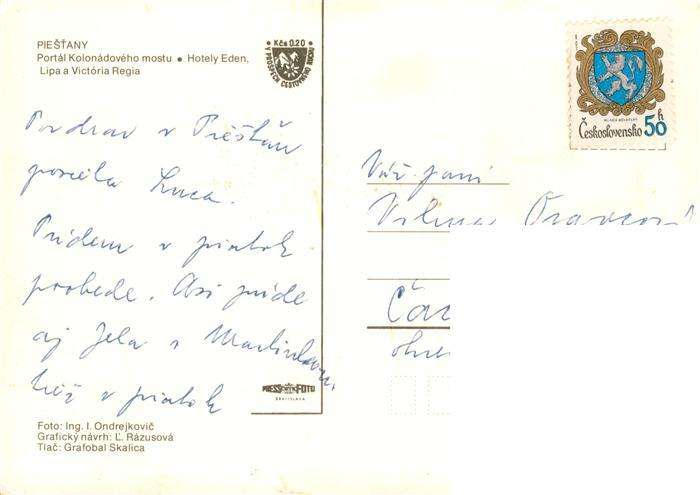 PIEŠŤANY
Portál Kolonádového mostu • Hotely Eden,
Lipa a Victória Regia
Kčs 0.20
V PROSPECH CESTOVNÉHO RUCHU
MLADÁ BOLESLAV
Československo 50 h
Pozdrav z Piešťan
posiela
Prídem v piatok
poobede. Asi príde
aj Jela s
tiež v piatok
Váž. pani
Vilma
PRESSFOTO
BRATISLAVA
Foto: Ing. I. Ondrejkovič
Grafický návrh: Ľ. Rázusová
Tlač: Grafobal Skalica